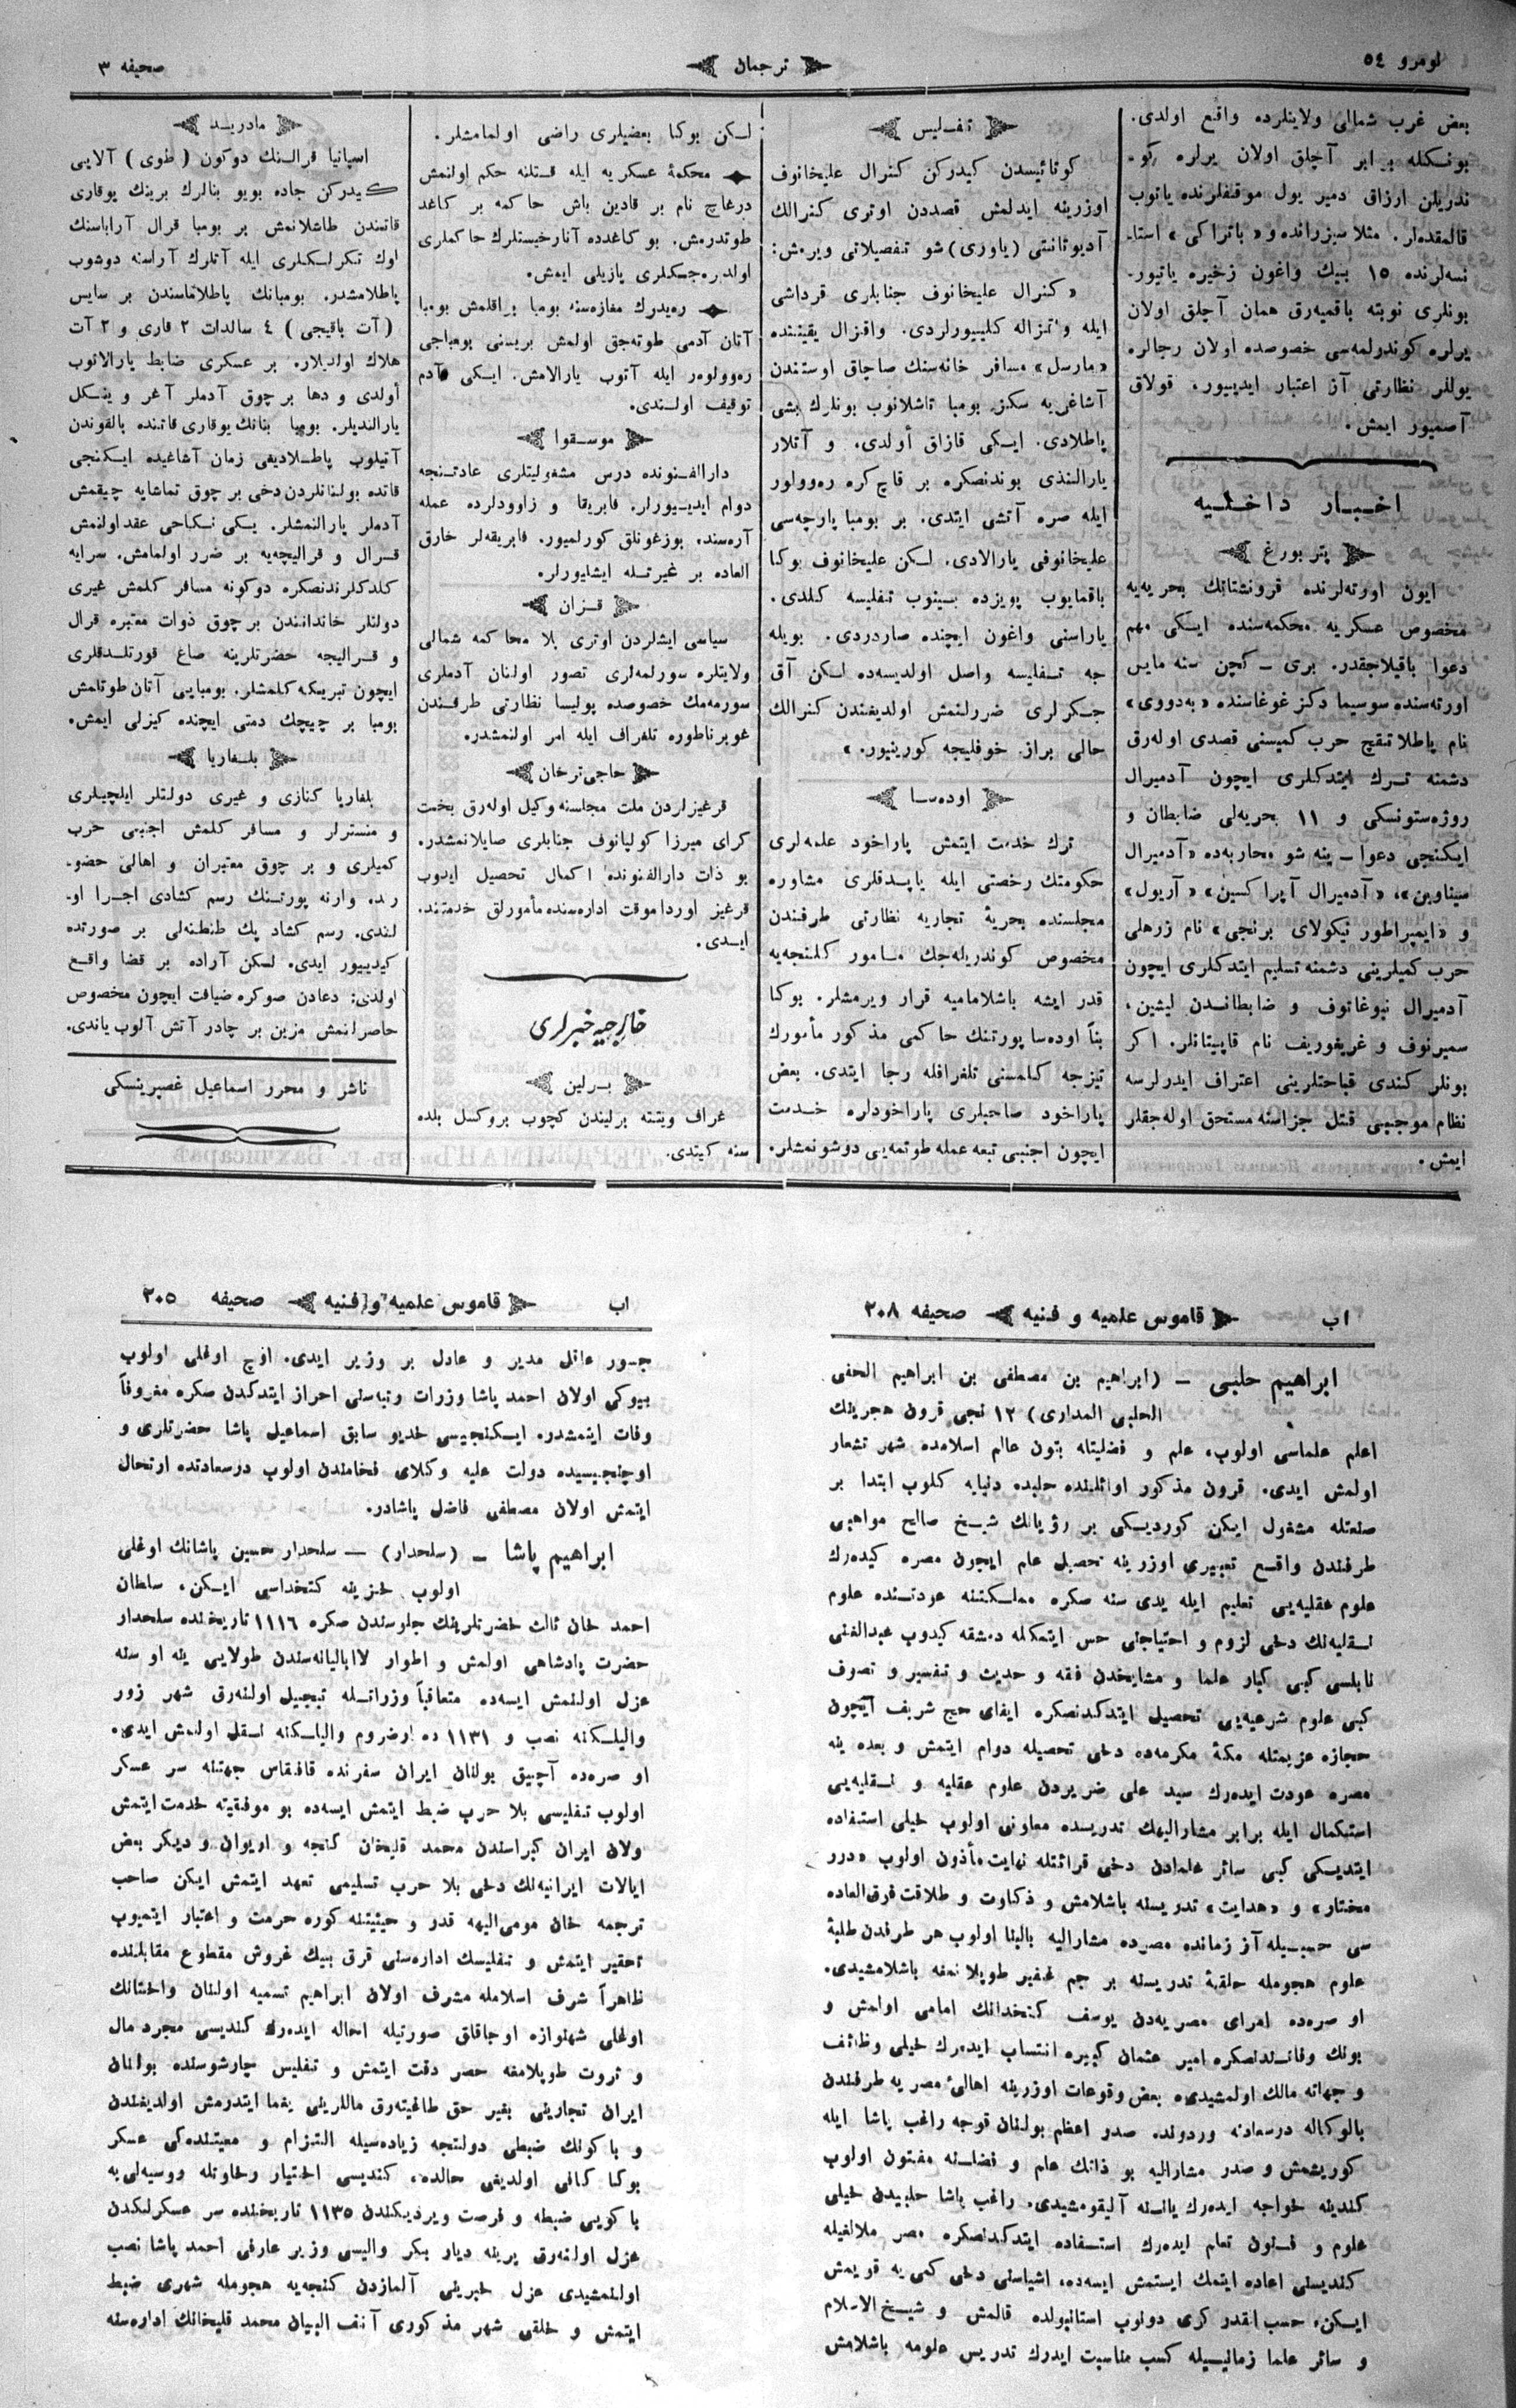 نومرو ٥٤
ترجمان
صحیفه ٣
بعض غرب شمالی ولایتلرده واقع اولدی.
بونكله برابر آچلق اولان یرلره كو-
ندریلن ارزاق دمیر یول موقفلرنده یاتوب
قالمقده‌ار. مثلا سیزرانده و «باتراكی» استا-
نسه‌لرنده ١٥ بیك واغون زخیره یاتیور.
بونلری نوبته باقمیه‌رق همان آچلق اولان
یرلره كوندرلمه‌سی خصوصده اولان رجالره
یوللر نظارتی آز اعتبار ایدییور، قولاق
آصمیور ایمش.
اخبار داخلیه
پتربورغ
ایون اورته‌لرنده قرونشتاتك بحریه‌یه
مخصوص عسكریه محكمه‌سنده ایكی مهم
دعوا باقیلاجقدر. بری – كچن سنه مایس
اورته‌سنده سوسیما دكز غوغاسنده «به‌دووی»
نام پاطلاتقچ حرب كمیسنی قصدی اوله‌رق
دشمنه ترك ایتدكلری ایچون آدمیرال
روژه‌ستونسكی و ١١ بحریه‌لی ضابطان و
ایكنچی دعوا – ینه شو محاربه‌ده «آدمیرال
سیناوین»، «آدمیرال آپراكسین» «آریول»
و «ایمپراطور نیكولای برنجی» نام زرهلی
حرب كمیلرینی دشمنه تسلیم ایتدكلری ایچون
آدمیرال نیوغاتوف و ضابطاندن لیشین،
سمیرنوف و غریغوریف نام قاپیتانلر. اكر
بونلر كندی قباحتلرینی اعتراف ایدرلرسه
نظام موجبی قتل جزاسنه مستحق اوله‌جقلر
ایمش.
تفلیس
كوتائیسدن كیدركن كنرال علیخانوف
اوزرینه ایدلمش قصددن اوتری كنرالك
آدیوتانتی (یاوری) شو تفصیلاتی ویرمش:
«كنرال علیخانوف جنابلری قرداشی
ایله وقزاله كلییورلردی. واقزال یقیننده
«مارسل» مسافر خانه‌سنك صاچاق اوستندن
آشاغی‌یه سكز بومبا تاشلانوب بونلرك بشی
پاطلادی. ایكی قازاق أولدی، و آتلار
یارالنذی بوندنصكره بر قاچ كره ره‌وولور
ایله صره آتشی ایتدی. بر بومبا پارچه‌سی
علیخانوفی یارالادی. لكن علیخانوف بوكا
باقمایوب پویزده بینوب تفلیسه كلدی.
یاراسنی واغون ایچنده صاردردی. بویله
جه تفلیسه واصل اولدیسه‌ده لكن آق
جكرلری ضررلنمش اولدیغندن كنرالك
حالی براز خوفلیجه كورینیور.»
اوده‌سا
ترك خدمت ایتمش پاراخود علمه‌لری
حكومتك رخصتی ایله یاپدقلری مشاوره
مجلسنده بحریۀ تجاریه نظارتی طرفندن
مخصوص كوندریله‌جك مامور كلنجه‌یه
قدر ایشه باشلامامیه قرار ویرمشلر. بوكا
بناً اوده‌سا پورتنك حاكمی مذكور مأمورك
تیزجه كلمسنی تلغرافله رجا ایتدی. بعض
پاراخود صاحبلری پاراخودلره خدمت
ایچون اجنبی تبعه عمله طوتمه‌یی دوشونمشلر.
لكن بوكا بعضیلری راضی اولمامشلر.
محكمۀ عسكریه ایله قتلنه حكم اولنمش
درغاچ نام بر قادین باش حاكمه بر كاغد
طوتدرمش. بو كاغدده آنارخیستلرك حاكملری
اولدره‌جكلری یازیلی ایمش.
ره‌یدرك مغازه‌سنه بومبا براقلمش بومبا
آتان آدمی طوته‌جق اولمش بریسنی بومباجی
ره‌وولوور ایله آتوب یارالامش. ایكی آدم
توقیف اولندی.
موسقوا
دارالفنونده درس مشغولیتلری عادتنجه
دوام ایدییورلر. فابریقا و زاوودلرده عمله
آره‌سنده بوزغونلق كورلمیور. فابریقه‌لر خارق
العاده بر غیرتله ایشلیورلر.
قزان
سیاسی ایشلردن اوتری بلا محاكمه شمالی
ولایتلره سورلمه‌لری تصور اولنان آدملری
سورمه‌مك خصوصده پولیسا نظارتی طرفندن
غوبرناطوره تلغراف ایله امر اولنمشدر.
حاجی‌ترخان
قرغیزلردن ملت مجلسنه وكیل اوله‌رق بخت
كرای میرزا كولپانوف جنابلری صایلانمشدر.
بو ذات دارالفنونده اكمال تحصیل ایدوب
قرغیز اوردا موقت اداره‌سنده مأمورلق خدمتنده
ایدی.
خارجیه خبرلری
برلین
غراف ویتته برلیندن كچوب بروكسل بلده
سنه كیتدی.
مادرید
اسپانیا قرالنك دوكون (طوی) آلایی
كیدركن جاده بویو بنالرك برینك یوقاری
قاتندن طاشلانمش بر بومبا قرال آراباسنك
اوك تكرلكلری ایله آتلرك آراسنه دوشوب
پاطلامشدر. بومبانك پاطلاماسندن بر سایس
(آت باقیجی) ٤ سالدات ٢ قاری و ٢ آت
هلاك اولدیلار. بر عسكری ضابط یارالانوب
أولدی و دها بر چوق آدملر آغر و ینكل
یارالندیلر. بومبا بنانك یوقاری قاتنده بالقوندن
آتیلوب پاطلادیغی زمان آشاغیده ایكنجی
قاتده بولنانلردن دخی بر چوق تماشایه چیقمش
آدملر یارالنمشلر. یكی نكاحی عقد اولنمش
قرال و قرالیچه‌یه بر ضرر اولمامش. سرایه
كلدكلرندنصكره دوكونه مسافر كلمش غیری
دولتلر خاندانندن بر چوق ذوات معتبره قرال
و قرالیچه حضرتلرینه صاغ قورتلدقلری
ایچون تبریكه كلمشلر. بومبایی آتان طوتلمش
بومبا بر چیچك دمتی ایچنده كیزلی ایمش.
بلغاریا
بلغاریا كنازی و غیری دولتلر ایلچیلری
و منسترلر و مسافر كلمش اجنبی حرب
كمیلری و بر چوق معتبران و اهالی حضو-
رده وارنه پورتنك رسم كشادی اجرا او-
لندی. رسم كشاد پك طنطنه‌لی بر صورتده
كیدییور ایدی. لكن آراده بر قضا واقع
اولدی: دعادن صوكره ضیافت ایچون مخصوص
حاضرلنمش مزین بر چادر آتش آلوب یاندی.
ناشر و محرر اسماعیل غصپرینسكی
اب
قاموس علمیه و فنیه
صحیفه ٢٠٨
ابراهیم حلبی – (ابراهیم بن مصطفی بن ابراهیم الحفی
الحلبی المداری) ١٢ نجی قرون هجرینك
اعلم علماسی اولوب، علم و فضلیتله بتون عالم اسلامده شهر تشعار
اولمش ایدی. قرون مذكور اوائلنده حلبده دنیایه كلوب ابتدا بر
صنعتله مشغول ایكن كوردیكی بر رؤیانك شیخ صالح مواهبی
طرفندن واقع تعبیری اوزرینه تحصیل علم ایچون مصره كیده‌رك
علوم عقلیه‌یی تعلیم ایله یدی سنه صكره مملكتنه عودتنده علوم
نقلیه‌نك دخی لزوم و احتیاجنی حس ایتمكله دمشقه كیدوب عبدالغنی
نابلسی كبی كبار علما و مشایخدن فقه و حدیث و تفسیر و تصوف
كبی علوم شرعیه‌یی تحصیل ایتدكدنصكره ایفای حج شریف ایچون
حجازه عزیمتله مكۀ مكرمه‌ده دخی تحصیله دوام ایتمش و بعده ینه
مصره عودت ایده‌رك سید علی ضریردن علوم عقلیه و نقلیه‌یی
استكمال ایله برابر مشارالیهك تدریسده معاونی اولوب خیلی استفاده
ایتدیكی كبی سائر علمادن دخی قرائتله نهایت مأذون اولوب «درر
مختار» و «هدایت» تدریسنه باشلامش و ذكاوت و طلاقت فرق‌العاده
سی حسبیله آز زمانده مصرده مشارالیه بالبنا اولوب هر طرفدن طلبۀ
علوم هجومله حلقۀ تدریسنه بر جم غفیر طوپلانمغه باشلامشیدی.
او صره‌ده امرای مصریه‌دن یوسف كتخدانك امامی اولمش و
بونك وفاتندنصكره امیر عثمان كبیره انتساب ایده‌رك خیلی وظائف
و جهاته مالك اولمشیدی، بعض وقوعات اوزرینه اهالئ مصریه طرفندن
بالوكاله درسعادته وردونده صدر اعظم بولنان قوجه راغب پاشا ایله
كوریشمش و صدر مشارالیه بو ذاتك علم و فضلنه مفتون اولوب
كندینه خواجه ایده‌رك یاننه آلیقومشیدی. راغب پاشا حلبیدن خیلی
علوم و فنون تعلم ایده‌رك استفاده ایتدكدنصكره مصر ملالغیله
كندیسنی اعاده ایتمك ایستمش ایسه‌ده، اشیاسنی دخی كمی یه قویمش
ایكن، حسب‌القدر كری دونوب استانبولده قالمش و شیخ الاسلام
و سائر علما زمانیسیله كسب مناسبت ایدرك تدریس علومه باشلامش
اب
قاموس علمیه و فنیه
صحیفه ٢٠٥
جسور عاقل مدیر و عادل بر وزیر ایدی. اوچ اوغلی اولوب
بیوكی اولان احمد پاشا وزرات رتبه‌سنی احراز ایتدكدن صكره مغروقاً
وفات ایتمشدر. ایكنجیسی خدیو سابق اسماعیل پاشا حضرتلری و
اوچنجیسیده دولت علیه وكلای فخامندن اولوب درسعادتده ارتحال
ایتمش اولان مصطفی فاضل پاشادر.
ابراهیم پاشا – (سلحدار) – سلحدار حسین پاشانك اوغلی
اولوب خزینه كتخداسی ایكن، سلطان
احمد خان ثالث حضرتلرینك جلوسندن صكره ١١١٦ تاریخنده سلحدار
حضرت پادشاهی اولمش و اطوار لاابالیانه‌سندن طولایی ینه او سنه
عزل اولنمش ایسه‌ده متعاقباً وزراتله تبجیل اولنه‌رق شهر زور
والیلكنه نصب و ١١٣١ ده ارضروم والیلكنه نقل اولنمش ایدی.
او صره‌ده آچیق بولنان ایران سفرنده قافقاس جهتنه سر عسكر
اولوب تفلیسی بلا حرب ضبط ایتمش ایسه‌ده بو موفقیته خدمت ایتمش
ولان ایران كبراسندن محمد قلیخان كنجه و اریوان و دیكر بعض
ایالات ایرانیه‌نك دخی بلا حرب تسلیمی تعهد ایتمش ایكن صاحب
ترجمه خان مومی‌الیهه قدر و حیثیتنه كوره حرمت و اعتبار ایتمیوب
تحقیر ایتمش و تفلیسك اداره‌سنی قرق بیك غروش مقطوع مقابلنده
ظاهراً شرف اسلامله مشرف اولان ابراهیم تسمیه اولنان واختانك
اوغلی شهنوازه اوجاقلق صورتیله احاله ایده‌رك كندیسی مجرد مال
و ثروت طوپلامغه حصر دقت ایتمش و تفلیس چارشوسنده بولنان
ایران تجارینی بغیر حق طاغیته‌رق ماللرینی یغما ایتدرمش اولدیغندن
و باكونك ضبطی دولتجه زیاده‌سیله التزام و معیتنده‌كی عسكر
بوكا كافی اولدیغی حالده، كندیسی اختیار رخاوتله ووسیه‌لی‌یه
باكویی ضبطه و فرصت ویردیكندن ١١٣٥ تاریخنده سر عسكرلكدن
عزل اولنه‌رق یرینه دیار بكر والیسی وزیر عارفی احمد پاشا نصب
اولنمشیدی عزل خبرینی آلمازدن كنجه‌یه هجومله شهری ضبط
ایتمش و خلقی شهر مذكوری آنف البیان محمد قلیخانك اداره‌سنه